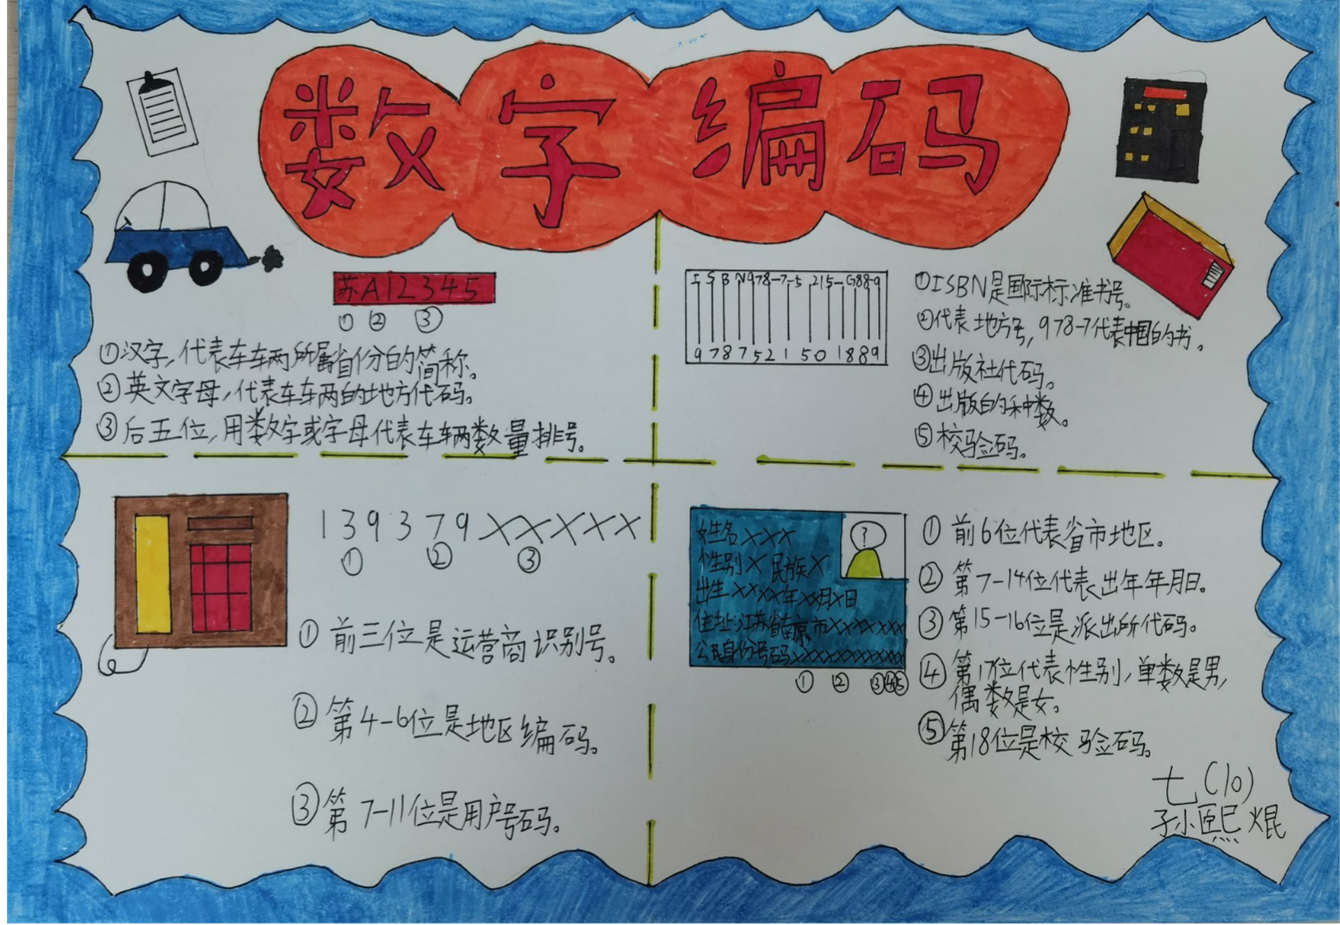 数字编码
苏A12345
① ② ③
①汉字,代表车车两所属省份的简称。
②英文字母,代表车车两的地方代码。
③后五位,用数字或字母代表车车辆数量排号。
ISBN978-7-5215-G88-9
9787521501889
①ISBN是国际标准书号。
②代表地方号,978-7代表中国的书。
③出版社代码。
④出版的种数。
⑤校验码。
139379XXXXX
① ② ③
①前三位是运营商识别号。
②第4-6位是地区编码。
③第7-11位是用户号码。
姓名XXX
性别X 民族X
出生XXXX年XX月X日
住址江苏省南京市XXXXXXX
公民身份号码XXXXXXXXXXXX
?
① ② ③④⑤
①前6位代表省市地区。
②第7-14位代表出年年月日。
③第15-16位是派出所代码。
④第17位代表性别,单数是男,
偶数是女。
⑤第18位是校验码。
七(10)
孙熙焜